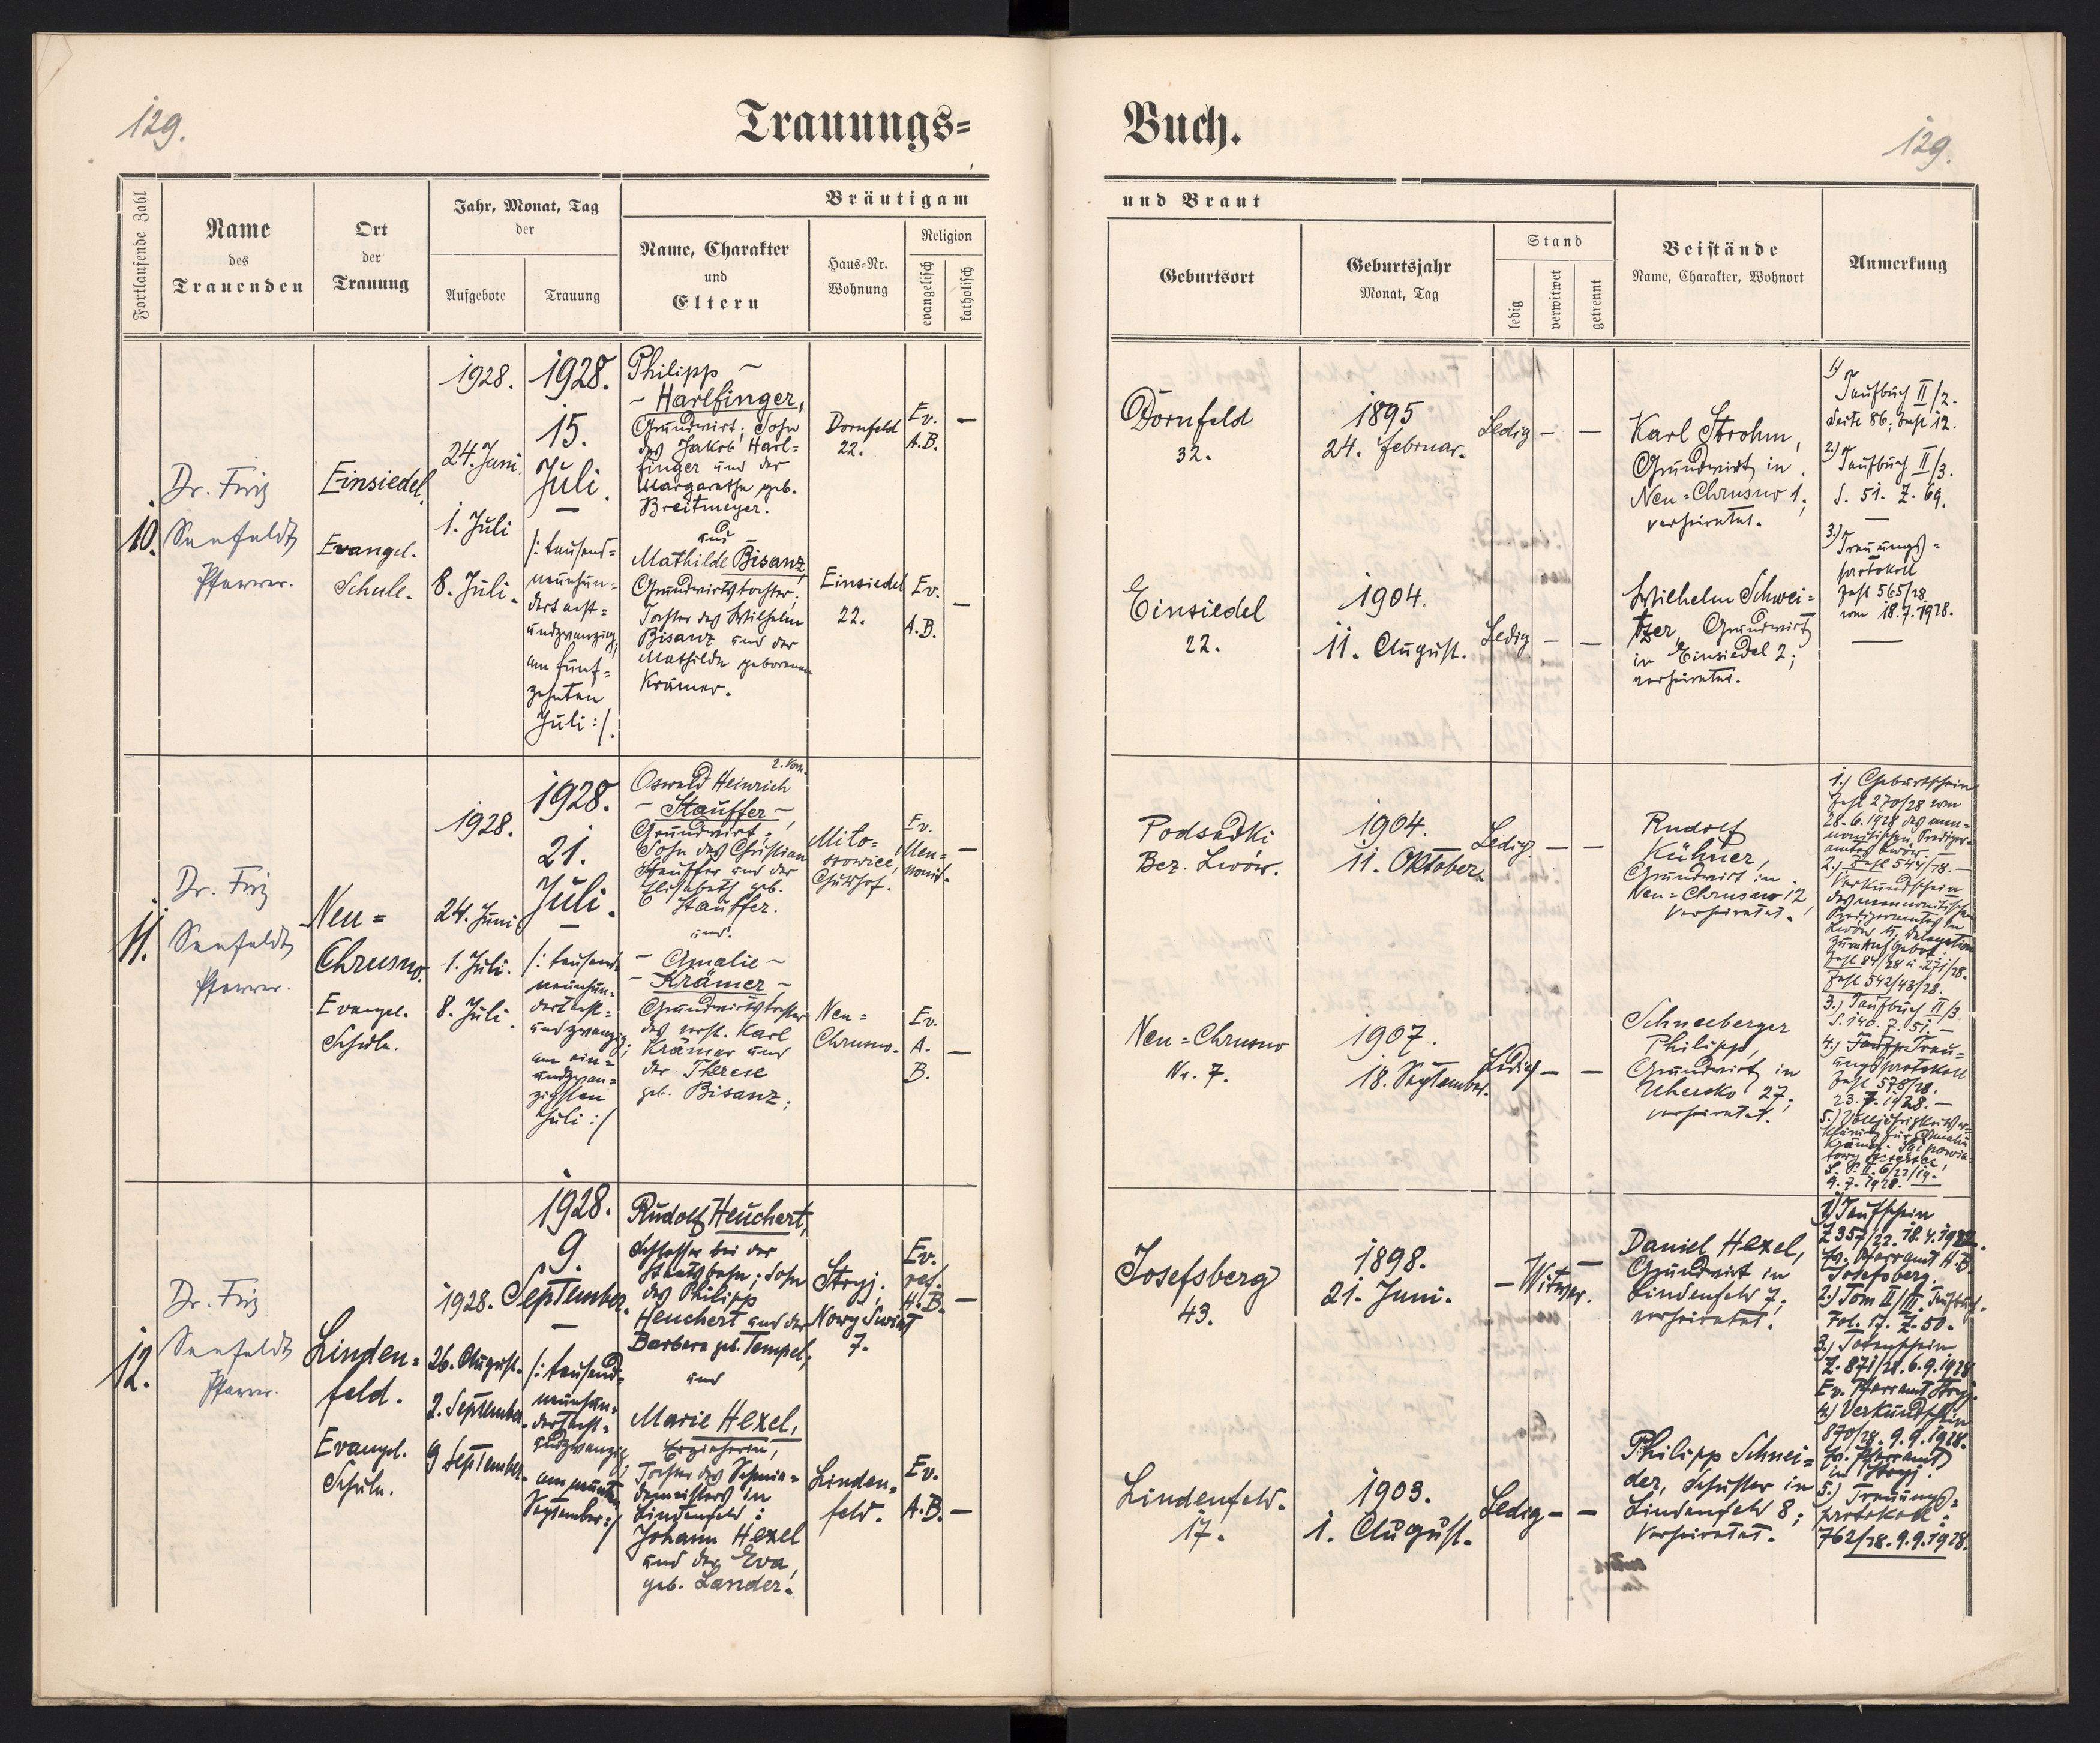 129.
Trauungs=
Fortlaufende Zahl
Name
des
Trauenden
Ort
der
Trauung
Jahr, Monat, Tag
der
Aufgebote
Trauung
Bräutigam
Name, Charakter
und
Eltern
Haus=Nr.
Wohnung
Religion
evangelisch
katholisch
10.
Dr. Friz
Seefeldt
Pfarrer.
Einsiedel.
Evangel.
Schule.
1928.
24. Juni
1. Juli
8. Juli.
1928.
15.
Juli.
/: tausend=
neunhun=
dertacht=
undzwanzig,
am fünf=
zehnten
Juli :/.
Philipp –
– Harlfinger,
Grundwirt; Sohn
des Jakob Harl=
finger und der
Margarethe geb.
Breitmeyer.
und
Mathilde Bisanz,
Grundwirtstochter;
Tochter des Wilhelm
Bisanz und der
Mathilde geborenen
Krämer.
Dornfeld
22.
Einsiedel
22.
Ev.
A.B.
–
Ev.
A.B.
–
11.
Dr. Friz
Seefeldt
Pfarrer.
Neu=
Chrusno.
Evangel.
Schule.
1928.
24. Juni
1. Juli.
8. Juli.
1928.
21.
Juli.
/: tausend=
neunhun=
dertacht=
undzwanzig;
am ein=
undzwan=
zigsten
Juli :/
2. Vorn.
Oswald Heinrich
– Stauffer –,
Grundwirt;
Sohn des Christian
Stauffer und der
Elisabeth geb.
Stauffer.
und
– Amalie –
– Krämer –
Grundwirtstochter
des verst. Karl
Krämer und
der Therese
geb. Bisanz;
Neu=
Chrusno.
Ev.
Men=
nonit.
–
Ev.
A.
B.
–
12.
Dr. Friz
Seefeldt
Pfarrer.
Linden=
feld.
Evangel.
Schule.
1928.
26. August.
2. September.
9 September.
1928.
9.
September.
/: tausend=
neunhun=
dertacht=
undzwanzig;
am neunten
September :/
Rudolf Heuchert,
Schlosser bei der
Staatsbahn; Sohn
des Philipp
Heuchert und der
Barbara geb. Tempel;
und
Marie Hexel,
Erzieherin,
Tochter des Schmie=
demeisters in
Lindenfeld:
Johann Hexel
und der Eva,
geb. Lander.
Stryj.
Nowy Swiat
7.
Linden=
feld.
Ev.
ref.
H.B.
–
Ev.
A.B.
–
Buch.
129.
und Braut
Geburtsort
Geburtsjahr
Monat, Tag
Stand
ledig
verwitwet
getrennt
Beistände
Name, Charakter, Wohnort
Anmerkung
Dornfeld
32.
1895
24. Februar.
Ledig – –
Karl Strohm,
Grundwirt in
Neu=Chrusno 1;
verheiratet.
1)
Taufbuch II/2.
Seite 86; Zahl 12.
2)
Taufbuch II/3.
S. 51. Z. 69.
3.)
Trauungs=
protokoll
Zahl 565/28
vom 18.7.1928.
Einsiedel
22.
1904.
11. August.
Ledig – –
Wilhelm Schwei=
tzer, Grundwirt
in Einsiedel 2;
verheiratet.
Podsadki
Bez. Lwów.
1904.
11. Oktober.
Ledig. – –
Rudolf
Kühner,
Grundwirt in
Neu=Chrusno 12,
verheiratet.
1.) Geburtsschein
Zahl 270/28 vom
28.6.1928 des men=
nonitischen Prediger=
amtes Lwów.
2.) Zahl 544/28. –
Verkündschein
des mennonitischen
Predigeramtes in
Lwów u. Delegation
zum Aufgebot.
Zahl 84/28 u. 271/28.
Zahl 542/43/28.
3.) Taufbuch II/3
S. 140. Z. 51. –
4.) Trau=
ungsprotokoll
Zahl 578/28.
23.7.1928. –
5.) Volljährigkeitser=
klärung für Amalie
9.7.1928.
Neu=Chrusno
Nr. 7.
1907.
18. September.
Ledig – –
Schneeberger
Philipp,
Grundwirt in
Uhersko 27;
verheiratet.
Josefsberg
43.
1898.
21. Juni.
– Witwer.
Daniel Hexel,
Grundwirt in
Lindenfeld 7;
verheiratet.
1) Taufschein
Z 357/22. 18.4.1922.
Ev. Pfarramt H.B.
Josefsberg.
2.) Tom II/III. Taufbuch.
Fol. 17. Z. 50.
3.) Totenschein
Z. 871/28. 6.9.1928
Ev. Pfarramt Stryj.
4.) Verkündschein
870/28. 9.9.1928.
Ev. Pfarramt
in Stryj.
5.) Trauungs=
protokoll:
762/28. 9.9.1928.
Lindenfeld.
17.
1903.
1. August.
Ledig – –
Philipp Schnei=
der, Schuster in
Lindenfeld 8;
verheiratet.